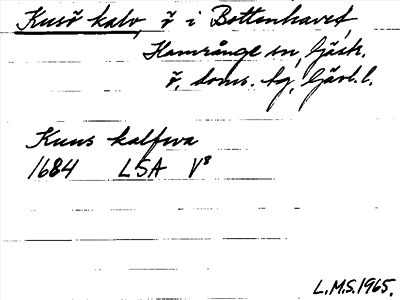 Kusö kalv, ö i Bottenhavet,
Hamrånge sn, Gäst.
ö. doms. tg, Gävl. l.
Kuus kalfwa
1684 LSA V8
L.M.S. 1965.